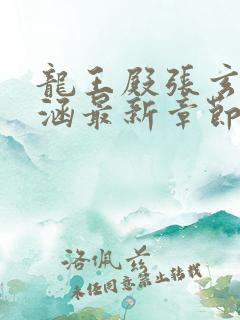 龍王殿張玄
涵最新章節
洛佩茲
未任同意禁止轉載